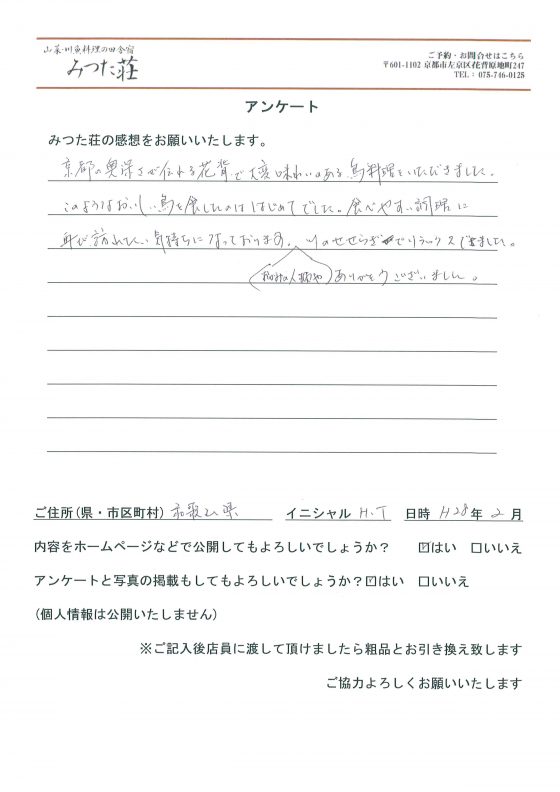 山菜・川魚料理の田舎宿
みつた荘
ご予約・お問合せはこちら
〒601-1102 京都市左京区花背原地町247
TEL： 075-746-0128
アンケート
みつた荘の感想をお願いいたします。
京都の奥深さが伝わる花背で大変味わいのある鳥料理をいただきました。
このようなおいしい鳥を食したのははじめてでした。食べやすい調理に
又訪れたい気持ちになっております。川のせせらぎでリラックスできました。
ありがとうございました。
ご住所(県・市区町村) 和歌山県 イニシャル H.T 日時 H28年 2月
内容をホームページなどで公開してもよろしいでしょうか？ ☑はい □いいえ
アンケートと写真の掲載もしてもよろしいでしょうか？☑はい □いいえ
(個人情報は公開いたしません)
※ご記入後店員に渡して頂けましたら粗品とお引き換え致します
ご協力よろしくお願いいたします